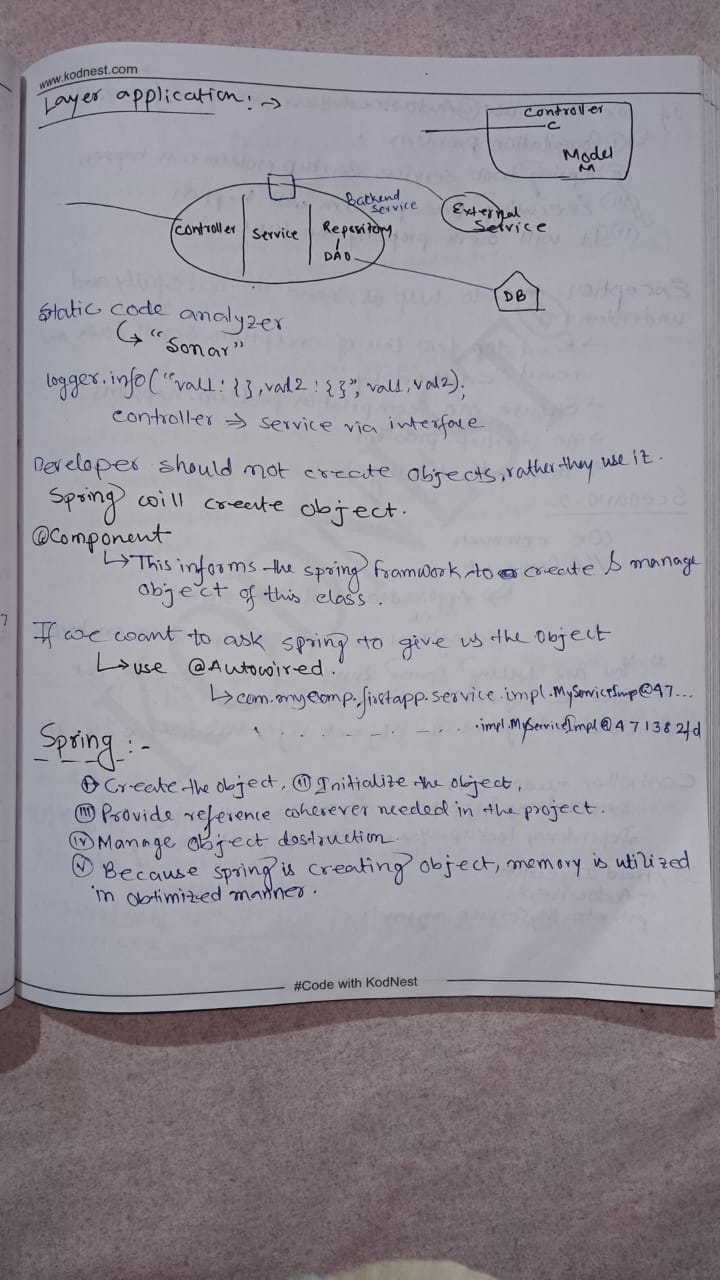 www.kodnest.com
Layer application:→
Controller
C
Model
M
Controller
Service
Backend
service
Repository
DAO
External
Service
DB
Static code analyzer
↳ "Sonar"
logger.info("val1: {}, val2: {}", val1, val2);
controller ⇒ service via interface
Developer should not create objects, rather they use it.
Spring will create object.
@Component
↳ This informs the spring framwork to create & manage
object of this class.
If we want to ask spring to give us the object
↳ use @Autowired.
↳ com.mycomp.firstapp.service.impl.MyServiceImp@47...
.impl.MyServiceImpl@471382fd
Spring :-
(i) Create the object, (ii) Initialize the object,
(iii) Provide reference wherever needed in the project.
(iv) Manage object destruction.
(v) Because spring is creating object, memory is utilized
in obtimized manner.
#Code with KodNest
KODNEST
7